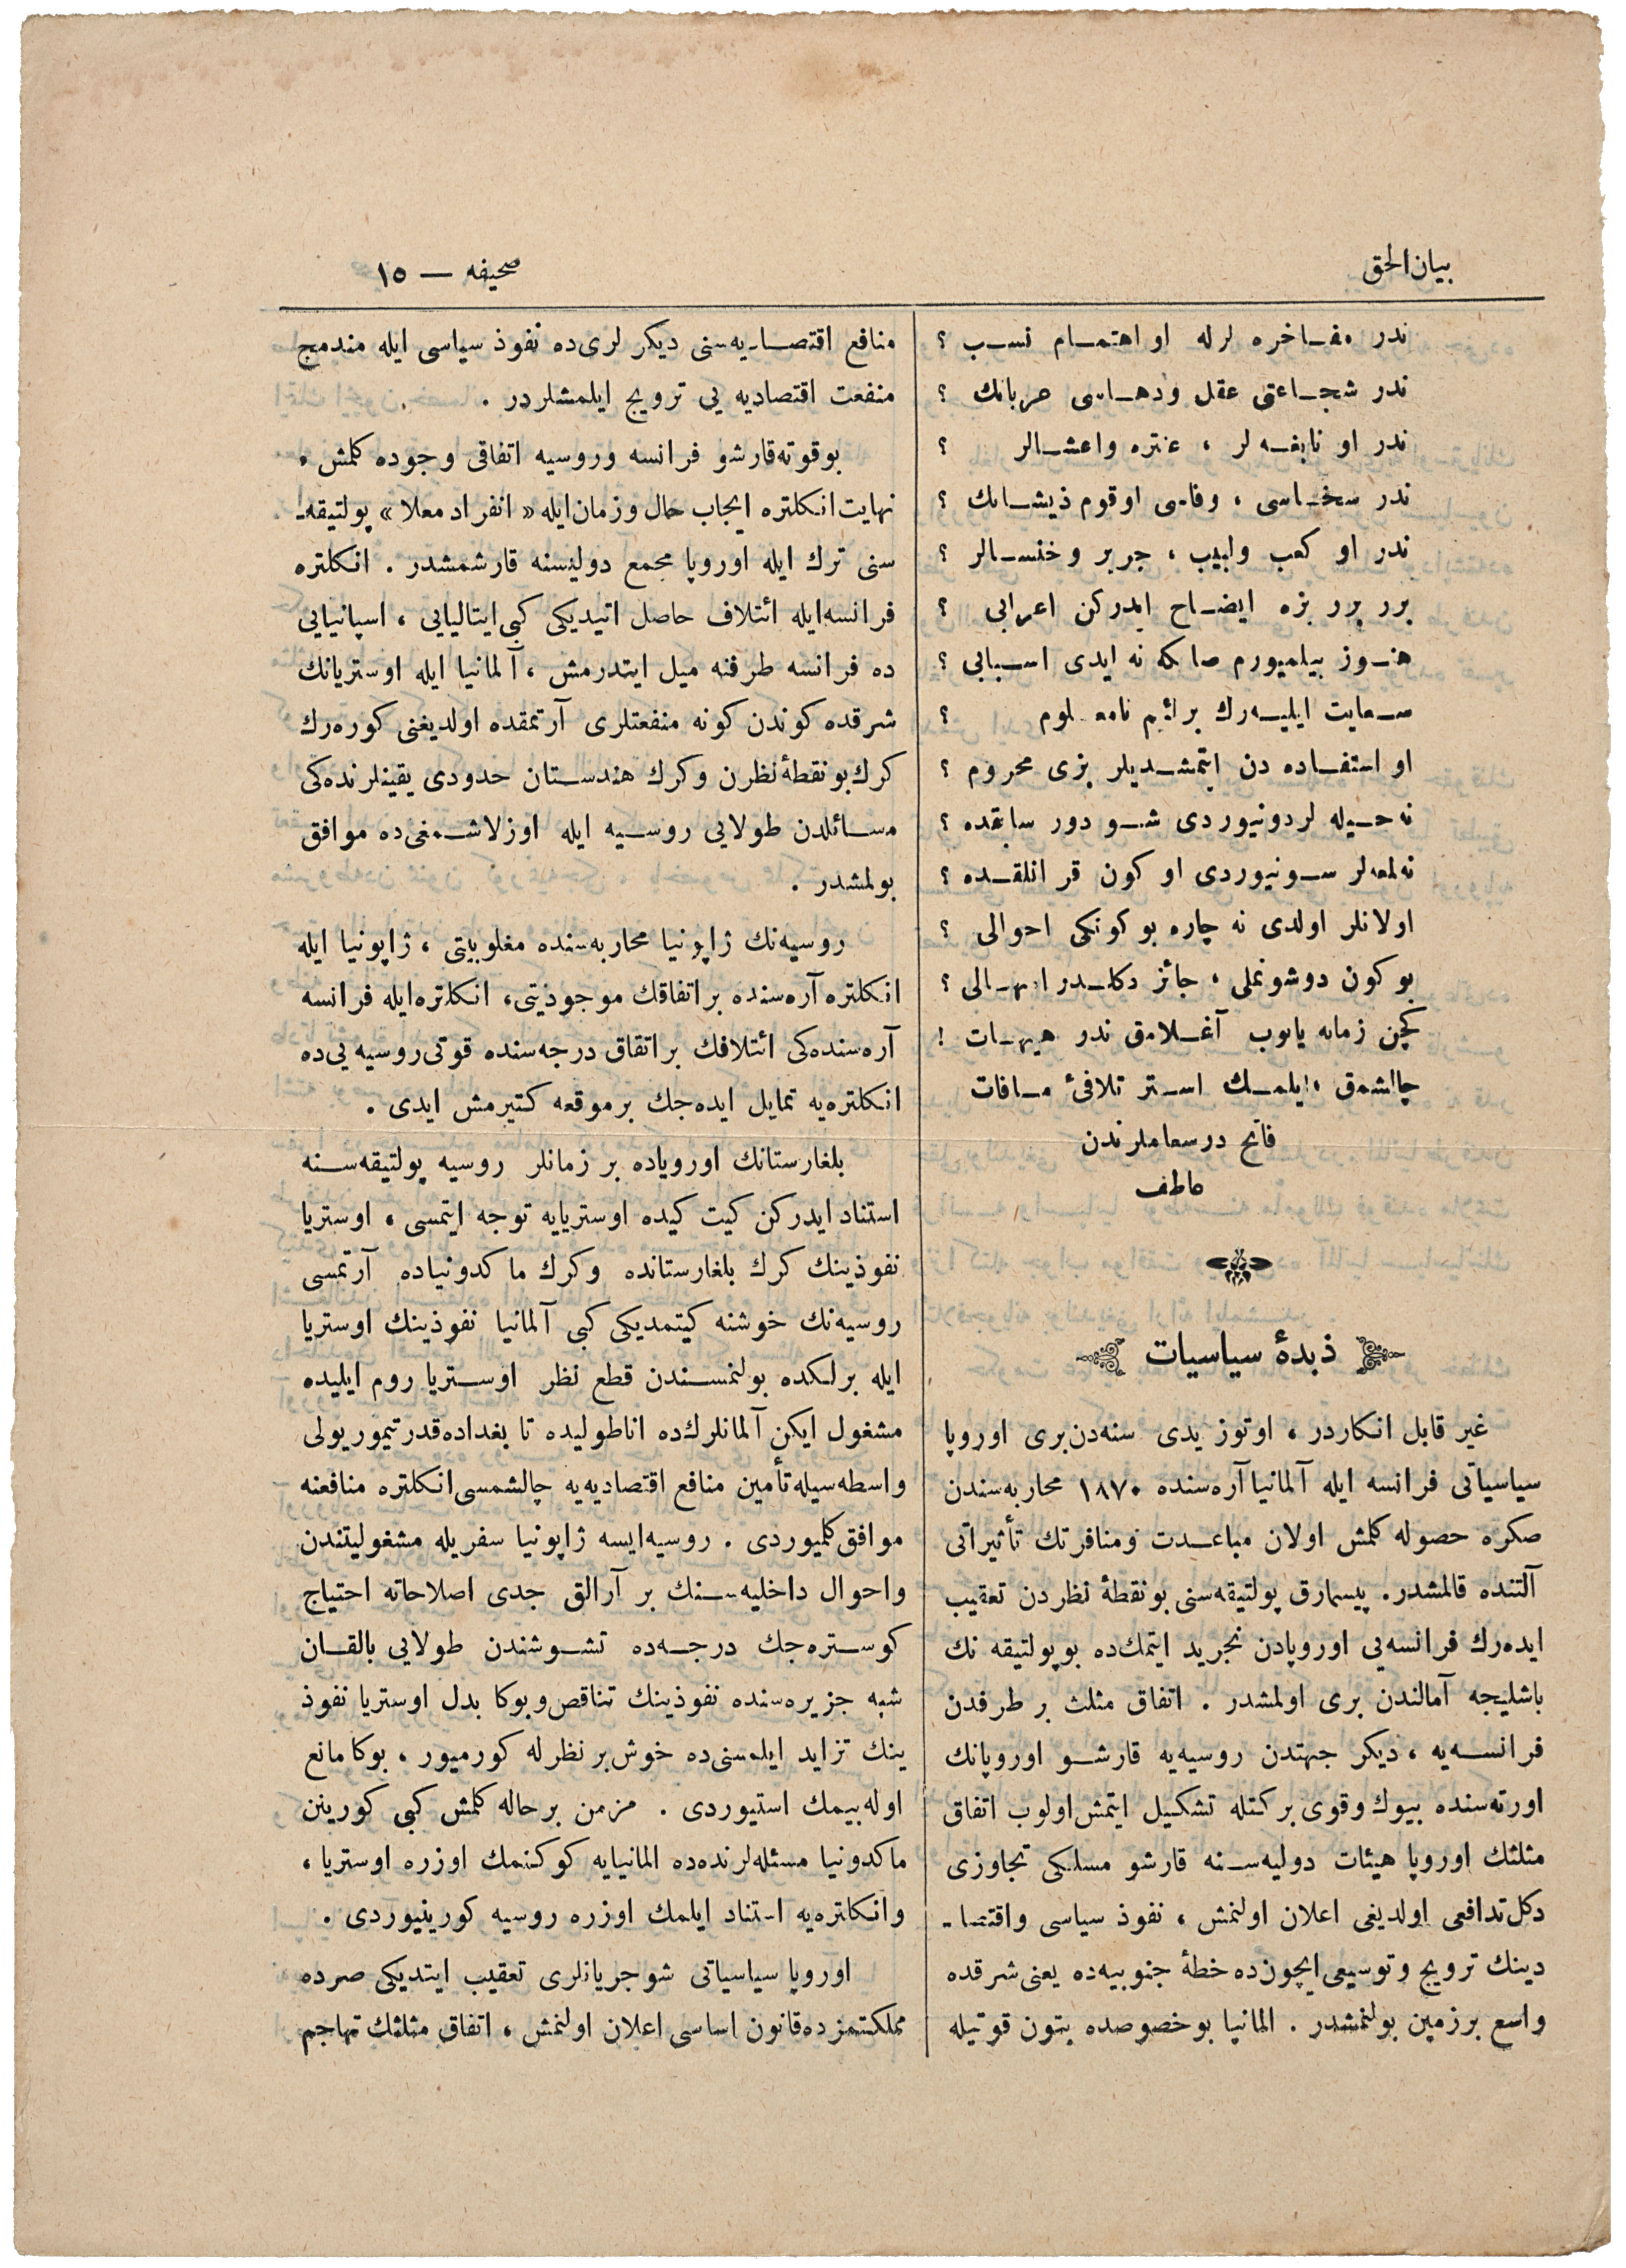 بيان الحق
صحيفه — ١٥
ندر مفاخره لرله او اهتمام نسب ؟
ندر شجاعتى عقل ودهاسى حربانك ؟
ندر او نابغه لر ، عنتره واعشالر ؟
ندر سخاسى ، وفاسى اوقوم ذيشانك ؟
ندر او كعب ولبيب ، جرير وخنسالر ؟
برر برر بزه ايضاح ايدركن اعرابى ؟
هنوز بيلميورم صاكه نه ايدى اسبابى ؟
سعايت ايليه رك بر لئيم نامعلوم ؟
او استفاده دن ايتمشديلر بزى محروم ؟
نه حيله لر دونيوردى شو دور سابقده ؟
نه لمعه لر سونيوردى او كون قر انلقده ؟
اولانلر اولدى نه چاره بو كونكى احوالى ؟
بو كون دوشونملى ، جائز دكلدر اهمالى ؟
كچن زمانه يانوب آغلامق ندر هيهات !
چالشمق ايلمك استر تلافئ مافات
فاتح درسعاملرندن
عاطف
ذبدۀ سياسيات
غير قابل انكاردر ، اوتوز يدى سنه دن برى اوروپا
سياسياتى فرانسه ايله آلمانيا آره سنده ١٨٧٠ محاربه سندن
صكره حصوله كلمش اولان مباعدت ومنافرتك تأثيراتى
آلتنده قالمشدر. پيسمارق پولتيقه سنى بو نقطۀ نظردن تعقيب
ايده رك فرانسه يى اوروپادن تجريد ايتمك ده بو پولتيقه نك
باشليجه آمالندن برى اولمشدر . اتفاق مثلث بر طرفدن
فرانسه يه ، ديكر جهتدن روسيه يه قارشو اوروپانك
اورته سنده بيوك وقوى بر كتله تشكيل ايتمش اولوب اتفاق
مثلثك اوروپا هيئات دوليه سنه قارشو مسلكى تجاوزى
دكل تدافعى اولديغى اعلان اولنمش ، نفوذ سياسى واقتصا-
دينك ترويج وتوسيعى ايچون ده خطۀ جنوبيه ده يعنى شرقده
واسع بر زمين بولنمشدر . المانيا بو خصوصده بتون قوتيله
منافع اقتصاديه سنى ديكر لرى ده نفوذ سياسى ايله مندمج
منفعت اقتصاديه يى ترويج ايلمشلردر .
بو قوته قارشو فرانسه وروسيه اتفاقى وجوده كلمش ،
نهايت انكلتره ايجاب حال وزمان ايله « انفراد معلا » پولتيقه-
سنى ترك ايله اوروپا مجمع دوليسنه قارشمشدر . انكلتره
فرانسه ايله ائتلاف حاصل اتيديكى كبى ايتاليايى ، اسپانيايى
ده فرانسه طرفنه ميل ايتدرمش ، آلمانيا ايله اوستريانك
شرقده كوندن كونه منفعتلرى آرتمقده اولديغنى كوره رك
كرك بو نقطۀ نظرن وكرك هندستان حدودى يقينلرنده كى
مسائلدن طولايى روسيه ايله اوزلاشمغى ده موافق
بولمشدر .
روسيه نك ژاپونيا محاربه سنده مغلوبيتى ، ژاپونيا ايله
انكلتره آره سنده بر اتفاقك موجوديتى، انكلتره ايله فرانسه
آره سنده كى ائتلافك بر اتفاق درجه سنده قوتى روسيه يى ده
انكلتره يه تمايل ايده جك بر موقعه كتيرمش ايدى .
بلغارستانك اوروپاده بر زمانلر روسيه پولتيقه سنه
استناد ايدركن كيت كيده اوستريايه توجه ايتمسى ، اوستريا
نفوذينك كرك بلغارستانده وكرك ماكدونياده آرتمسى
روسيه نك خوشنه كيتمديكى كبى آلمانيا نفوذينك اوستريا
ايله برلكده بولنمسندن قطع نظر اوستريا روم ايليده
مشغول ايكن آلمانلرك ده اناطوليده تا بغداده قدر تيمور يولى
واسطه سيله تأمين منافع اقتصاديه يه چالشمسى انكلتره منافعنه
موافق كلميوردى . روسيه ايسه ژاپونيا سفريله مشغوليتندن
واحوال داخليه سنك بر آرالق جدى اصلاحاته احتياج
كوستره جك درجه ده تشوشندن طولايى بالقان
شبه جزيره سنده نفوذينك تناقص وبوكا بدل اوستريا نفوذ
ينك تزايد ايلمسنى ده خوش بر نظرله كورميور ، بوكا مانع
اوله بيمك استيوردى . مزمن بر حاله كلمش كبى كورينن
ماكدونيا مسئله لرنده ده المانيايه كوكنمك اوزره اوستريا ،
وانكلتره يه استناد ايلمك اوزره روسيه كورينيوردى .
اوروپا سياسياتى شو جريانلرى تعقيب ايتديكى صرده
مملكتمزده قانون اساسى اعلان اولنمش ، اتفاق مثلثك تهاجم